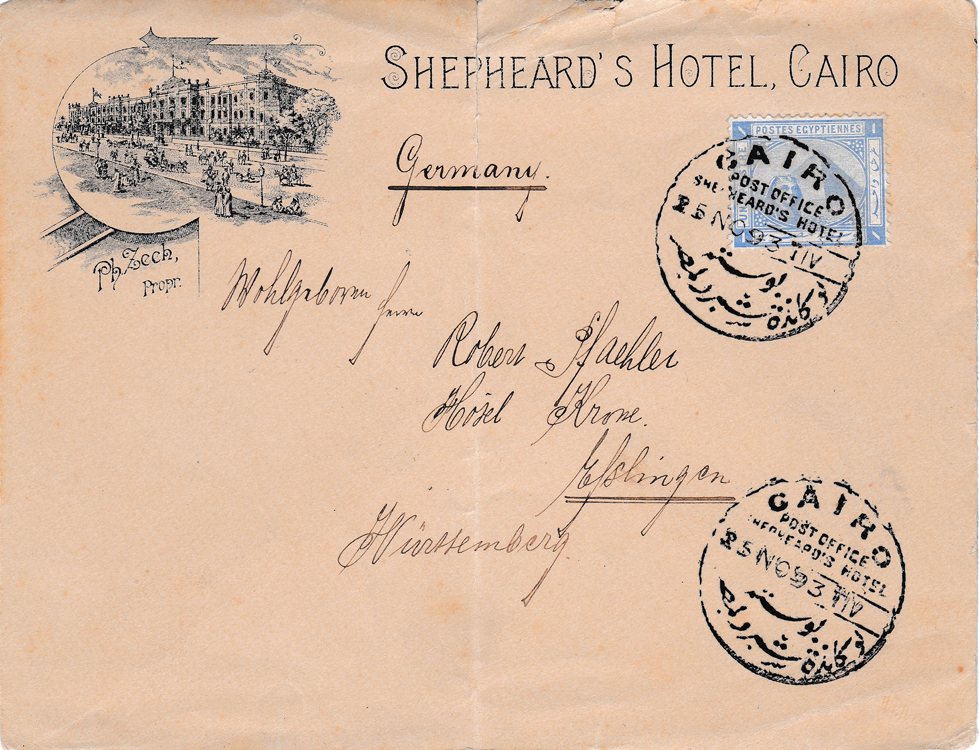 SHEPHEARD'S HOTEL, CAIRO
Ph. Zech,
Propr.
POSTES EGYPTIENNES
CAIRO
POST OFFICE
SHEPHEARD'S HOTEL
25 NO 93 T IV
بوسته
Germany.
Wohlgeboren Herrn
Robert Pfaehler
Hôtel Krone.
Esslingen
Württemberg.
CAIRO
POST OFFICE
SHEPHEARD'S HOTEL
25 NO 93 T IV
بوسته